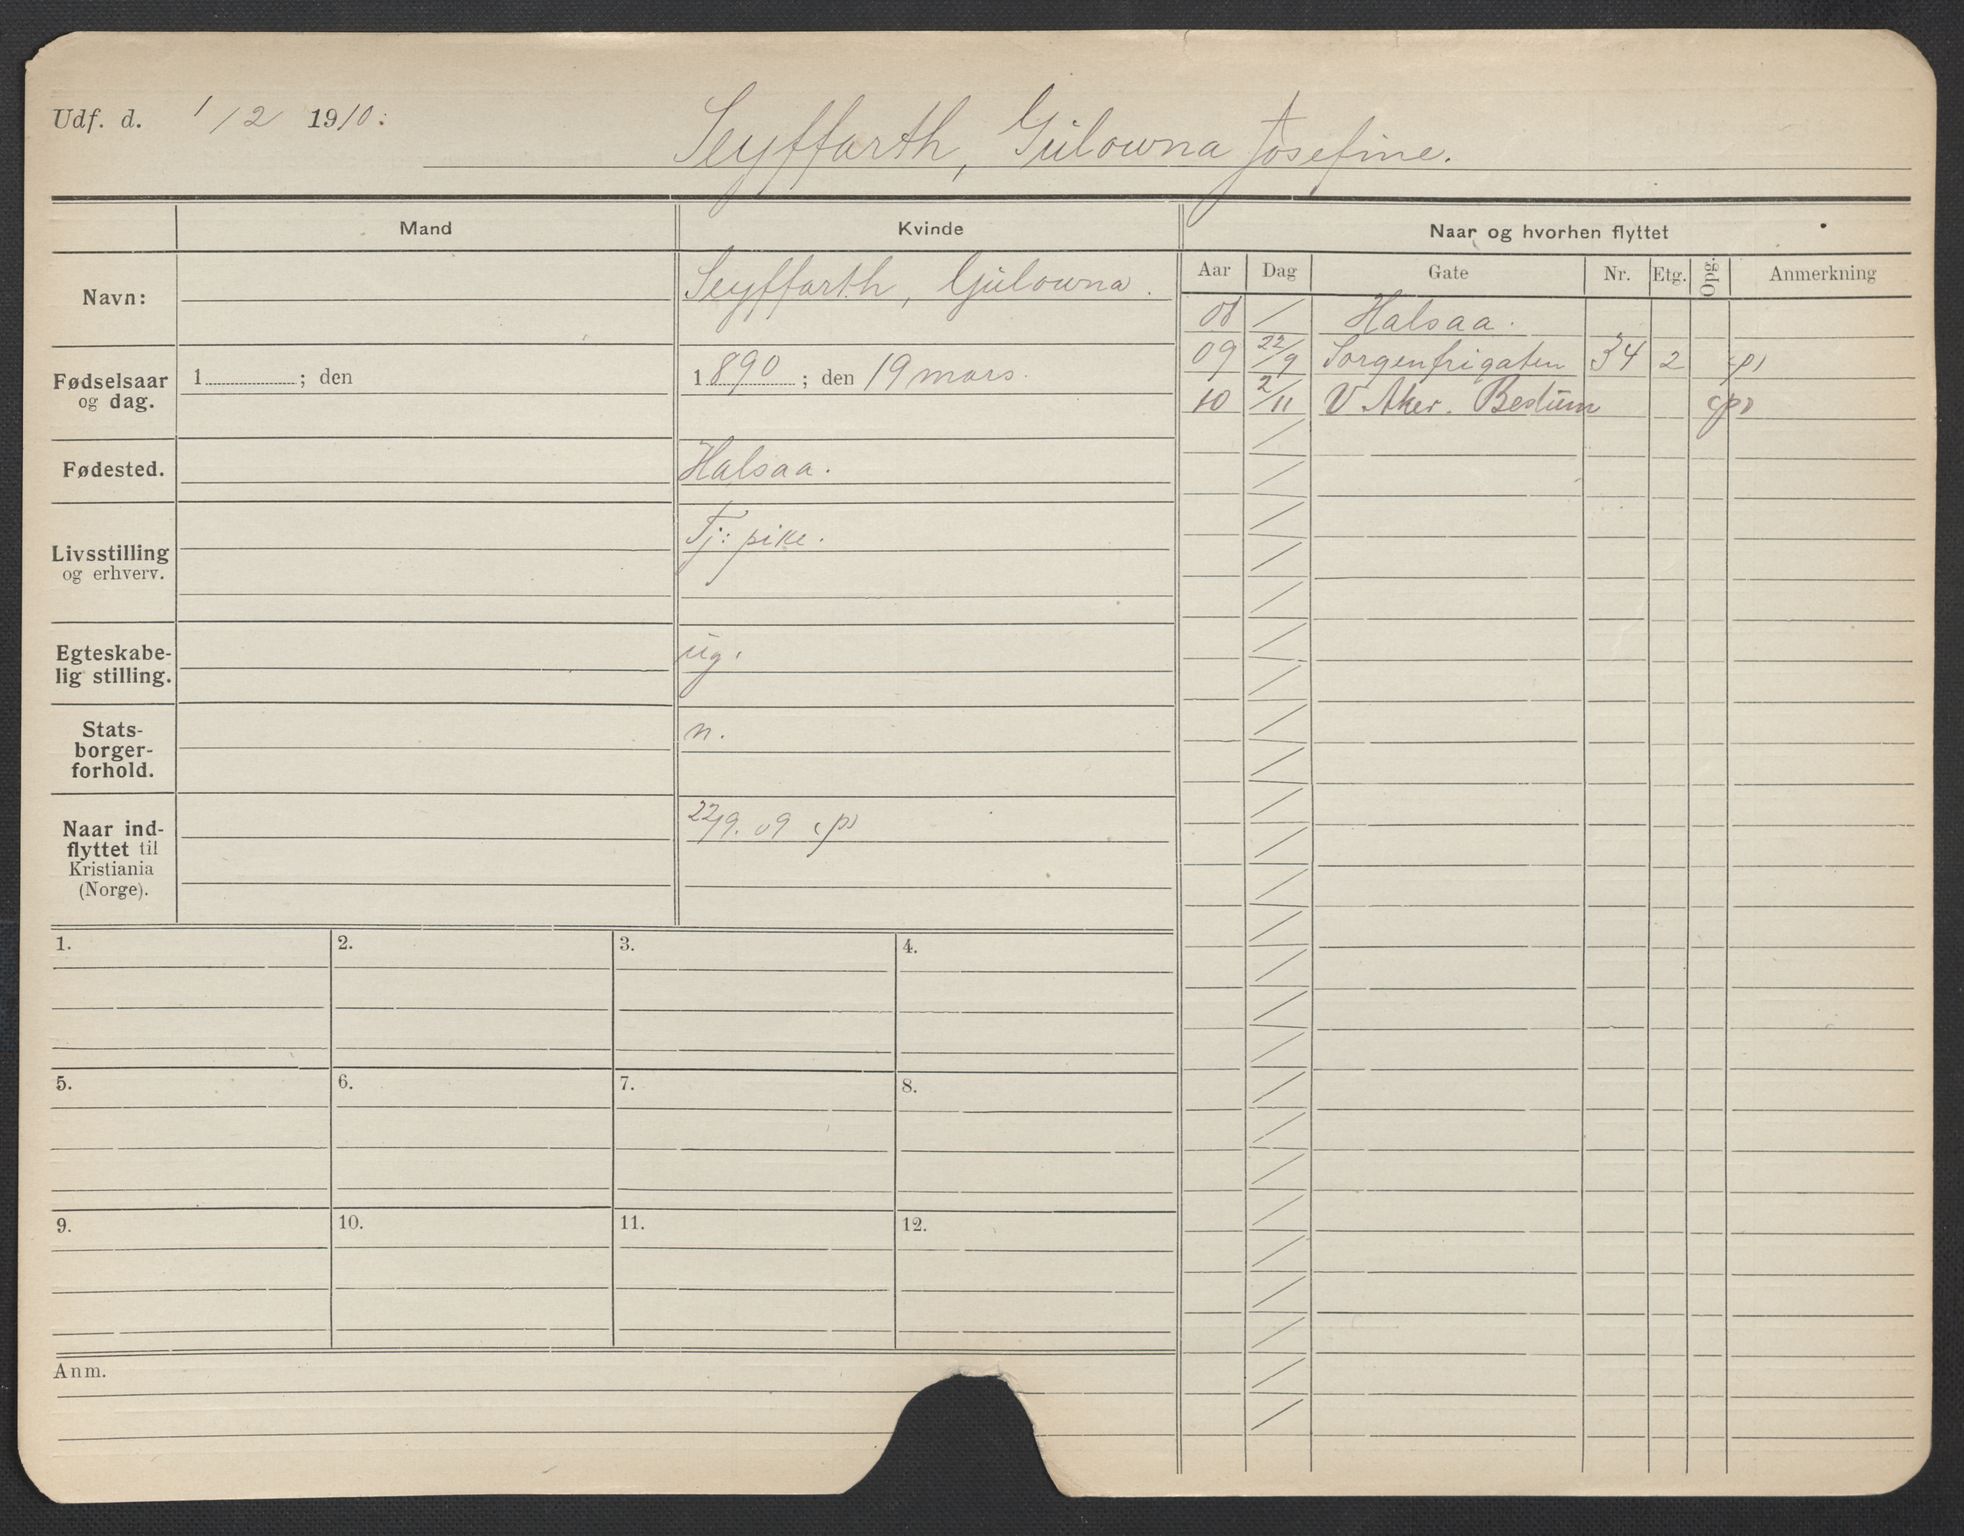 Udf. d. 1/2 1910.
Seyffarth, Gulowna Josefine.
Mand Kvinde Naar og hvorhen flyttet
Aar Dag Gate Nr. Etg. Opg. Anmerkning
Navn: Seyffarth, Gulowna.
08 / Halsaa.
09 22/9 Sorgenfrigaten 34 2 (p)
10 2/11 V Aker. Bestum (p)
Fødselsaar
og dag.
1 ; den
1890 ; den 19 mars.
Fødested. Halsaa.
Livsstilling
og erhverv.
Tj: pike.
Egteskabe-
lig stilling.
ug.
Stats-
borger-
forhold.
n.
Naar ind-
flyttet til
Kristiania
(Norge).
22/9. 09 (p)
1. 2. 3. 4.
5. 6. 7. 8.
9. 10. 11. 12.
Anm.